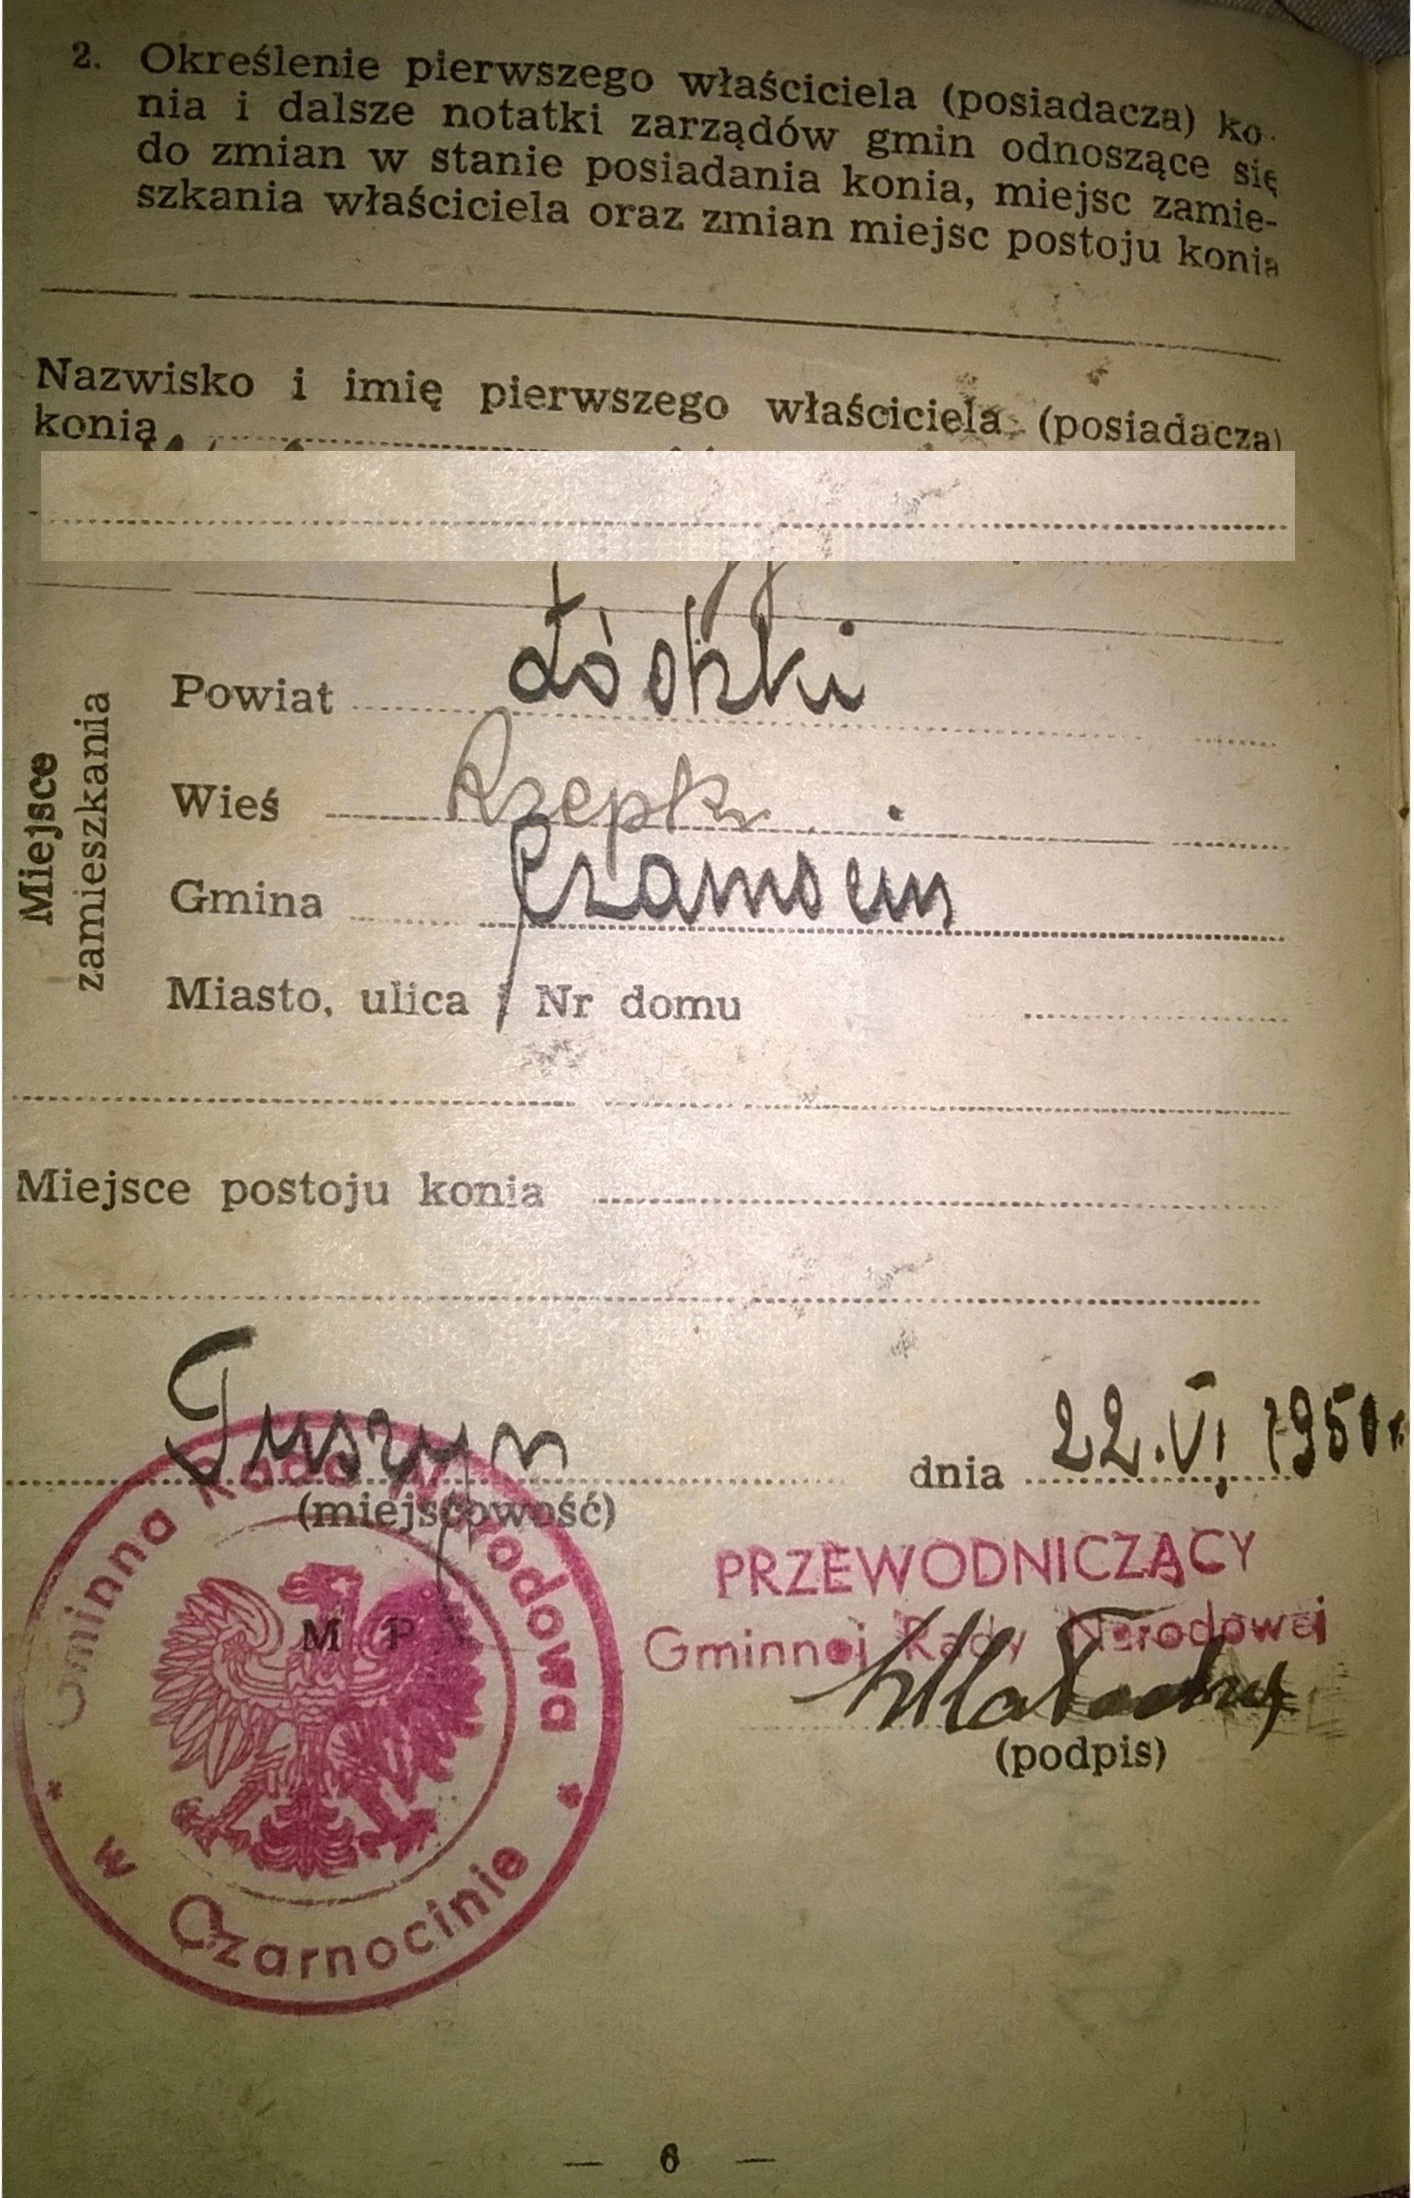 2. Określenie pierwszego właściciela (posiadacza) ko-
nia i dalsze notatki zarządów gmin odnoszące się
do zmian w stanie posiadania konia, miejsc zamie-
szkania właściciela oraz zmian miejsc postoju konia
Nazwisko i imię pierwszego właściciela (posiadacza)
konia
Miejsce
zamieszkania
Powiat Łódzki
Wieś Rzepki
Gmina Czarnocin
Miasto, ulica i Nr domu
Miejsce postoju konia
Tuszyn dnia 22.VI 1950 r.
(miejscowość)
M P
Gminna Rada Narodowa
* w Czarnocinie *
PRZEWODNICZĄCY
Gminnej Rady Narodowej
(podpis)
— 6 —